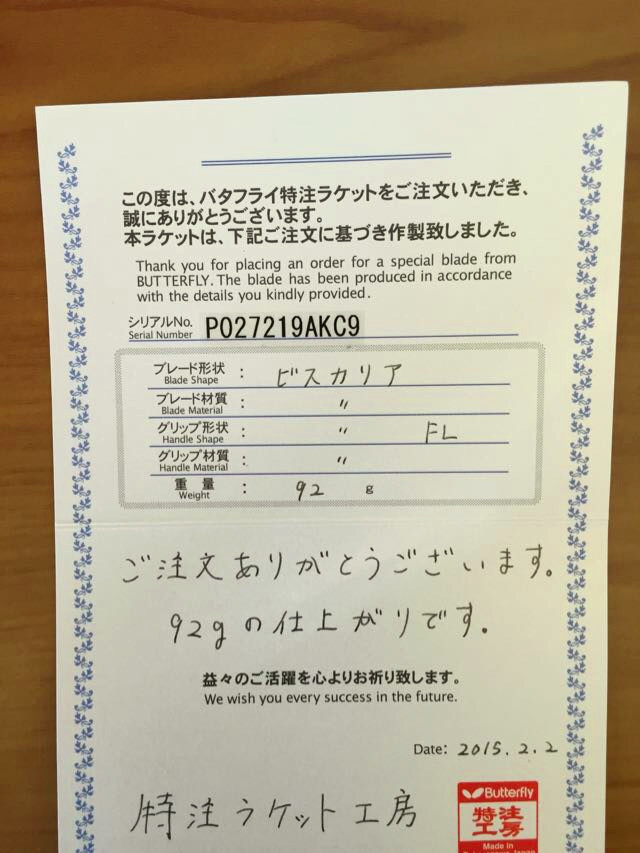 この度は、バタフライ特注ラケットをご注文いただき、
誠にありがとうございます。
本ラケットは、下記ご注文に基づき作製致しました。
Thank you for placing an order for a special blade from
BUTTERFLY. The blade has been produced in accordance
with the details you kindly provided.
シリアルNo.
Serial Number P027219AKC9
ブレード形状
Blade Shape : ビスカリア
ブレード材質
Blade Material : 〃
グリップ形状
Handle Shape : 〃 FL
グリップ材質
Handle Material : 〃
重量
Weight : 92 g
ご注文ありがとうございます。
92gの仕上がりです。
益々のご活躍を心よりお祈り致します。
We wish you every success in the future.
Date: 2015.2.2
特注ラケット工房
Butterfly
特注
工房
Made in